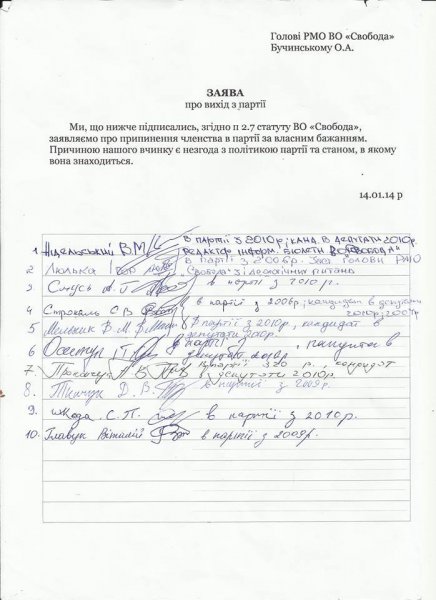 Голові РМО ВО «Свобода»
Бучинському О.А.
ЗАЯВА
про вихід з партії
Ми, що нижче підписались, згідно п 2.7 статуту ВО «Свобода»,
заявляємо про припинення членства в партії за власним бажанням.
Причиною нашого вчинку є незгода з політикою партії та станом, в якому
вона знаходиться.
14.01.14 р
1. В.М. в партії з 2010 р; канд. в депутати 2010р.
редактор інформ. "Свобода"
2 Люлька в партії з 2006р. Заст. голови РМО
"Свобода" з ідеологічних питань
3 в партії з 2010 р.
4 С В в партії з 2006р; кандидат в депутати
2010р;
5 Мельник В. М. в партії з 2010р, кандидат в
депутати 2010р.
6 в партії з , кандидат в
депутат. 2010р
7 В. в партії р., кандидат
в депутати 2010р.
8. Тимчук Д. В. в партії з 2009р.
9. Шкода С. П. в партії з 2010 р.
10. Главук Віталій в партії з 2009р.